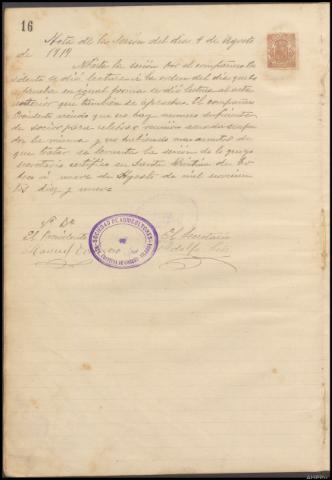 16
Acta de la sesión del día 9 de Agosto
de 1919
Abierta la sesión por el compañero
se dió lectura á la orden del día que es
aprobada en igual forma se dió lectura al acta
anterior que también es aprobada. El compañero
Presidente viendo que no hay número suficiente
de socios para celebrar reunion acuerda suspen
der la misma y no habiendo mas asuntos de
que tratar se levanta la sesión de lo que yo
Secretario certifico en Santa Cristina de
á nueve de Agosto de mil novecien
tos diez y nueve
Vº Bº
El Presidente
El Secretario
Manuel
Adolfo
SOCIEDAD DE AGRICULTORES